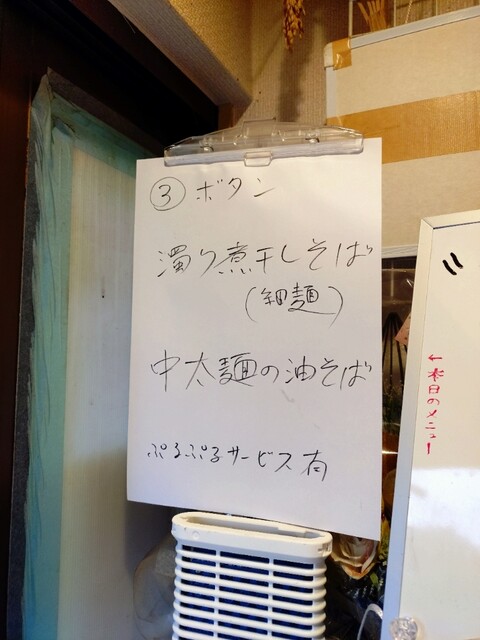 ③ボタン
濁り煮干しそば
(細麺)
中太麺の油そば
ぷるぷるサービス有
←本日のメニュー